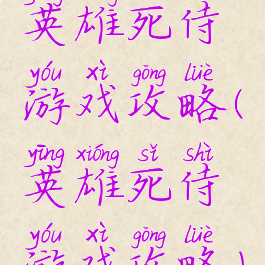 英雄死侍
yóu xì gōng lüè
游戏攻略(
yīng xióng sǐ shì
英雄死侍
yóu xì gōng lüè
游戏攻略)